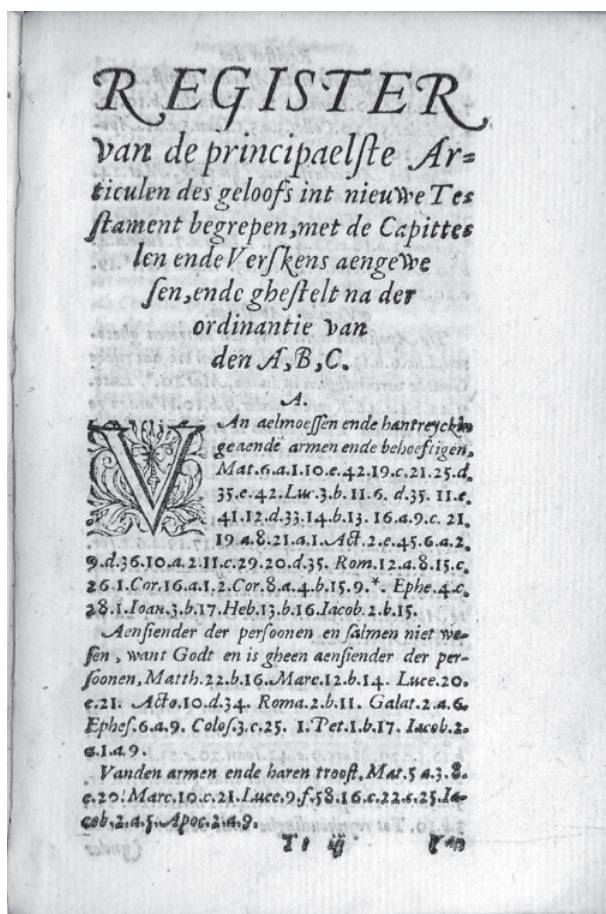 REGISTER
van de principaelste Ar=
ticulen des geloofs int nieuwe Tes
stament begrepen, met de Capittes
len ende Verskens aengewe
sen, ende ghestelt na der
ordinantie van
den A, B, C.
A.
VAn aelmoessen ende hantreyckin
ge aende armen ende behoeftigen,
Mat.6.a.1.10.e.42.19.c.21.25.d.
35.e.42. Luc.3.b.11.6. d.35. 11.e.
41.12.d.33.14.b.13. 16.a.9.c. 21.
19 a.8.21.a.1. Act.2.e.45.6.a.2.
9.d.36.10.a.2.11.c.29.20.d.35. Rom.12.a.8.15.c.
26.1.Cor.16.a.1.2.Cor.8.a.4.b.15.9.*. Ephe.4.c.
28.1.Ioan.3.b.17.Heb.13.b.16.Iacob.2.b.15.
Aensiender der persoonen en salmen niet we-
sen, want Godt en is gheen aensiender der per-
soonen, Matth.22.b.16.Marc.12.b.14. Luce.20.
c.21. Acto.10.d.34. Roma.2.b.11. Galat.2.a.6.
Ephes.6.a.9. Colos.3.c.25. 1.Pet.1.b.17. Iacob.2.
a.1.a.9.
Vanden armen ende haren troost, Mat.5 a.3.8.
c.20. Marc.10.c.21.Luce.9.f.58.16.c.22.c.25.Ia-
cob.2.a.5.Apoc.2.a.9.